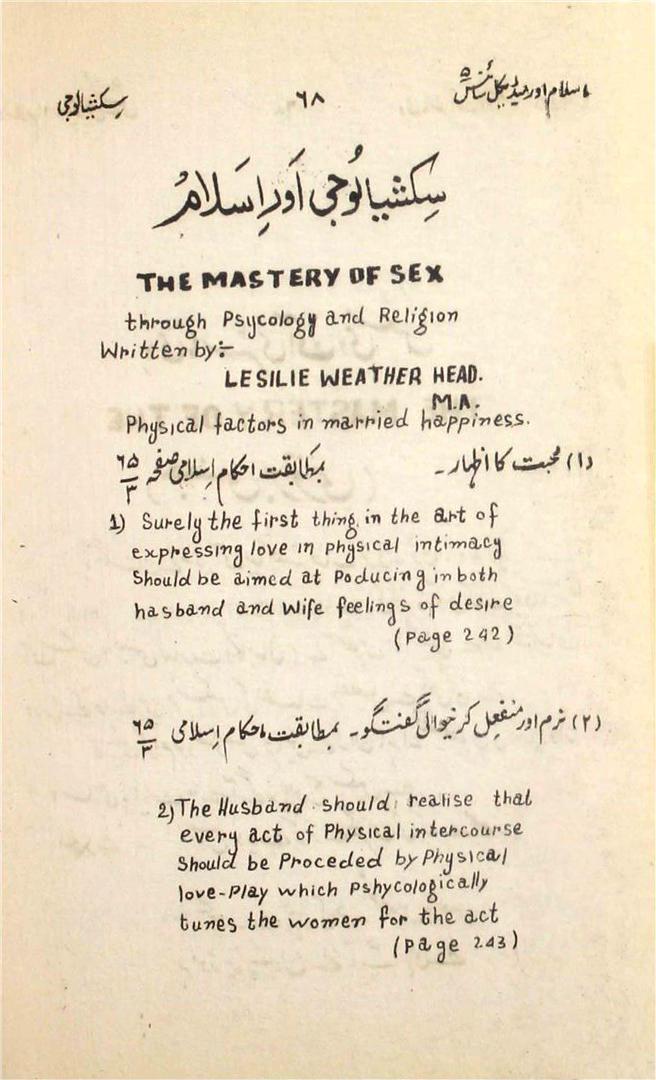 اسلام اور میڈیکل سائنس ۵ ۶۸ سکشیالوجی
سِکشیالُوجی اَور اِسَلامُ
THE MASTERY OF SEX
through Psycology and Religion
Written by:-
LESILIE WEATHER HEAD.
M.A.
Physical factors in married happiness.
(۱) محبت کا اظہار۔ بمطابقت احکام اِسلامی صفحہ ۶۵/۳
1) Surely the first thing in the art of
expressing love in physical intimacy
Should be aimed at Poducing in both
hasband and Wife feelings of desire
(Page 242)
(۲) نرم اور منفعِل کرنیوالی گفتگو۔ بمطابقت احکام اِسلامی ۶۵/۳
2) The Husband should realise that
every act of Physical intercourse
Should be Proceded by Physical
love-Play which Pshycologically
tunes the women for the act
(Page 243)